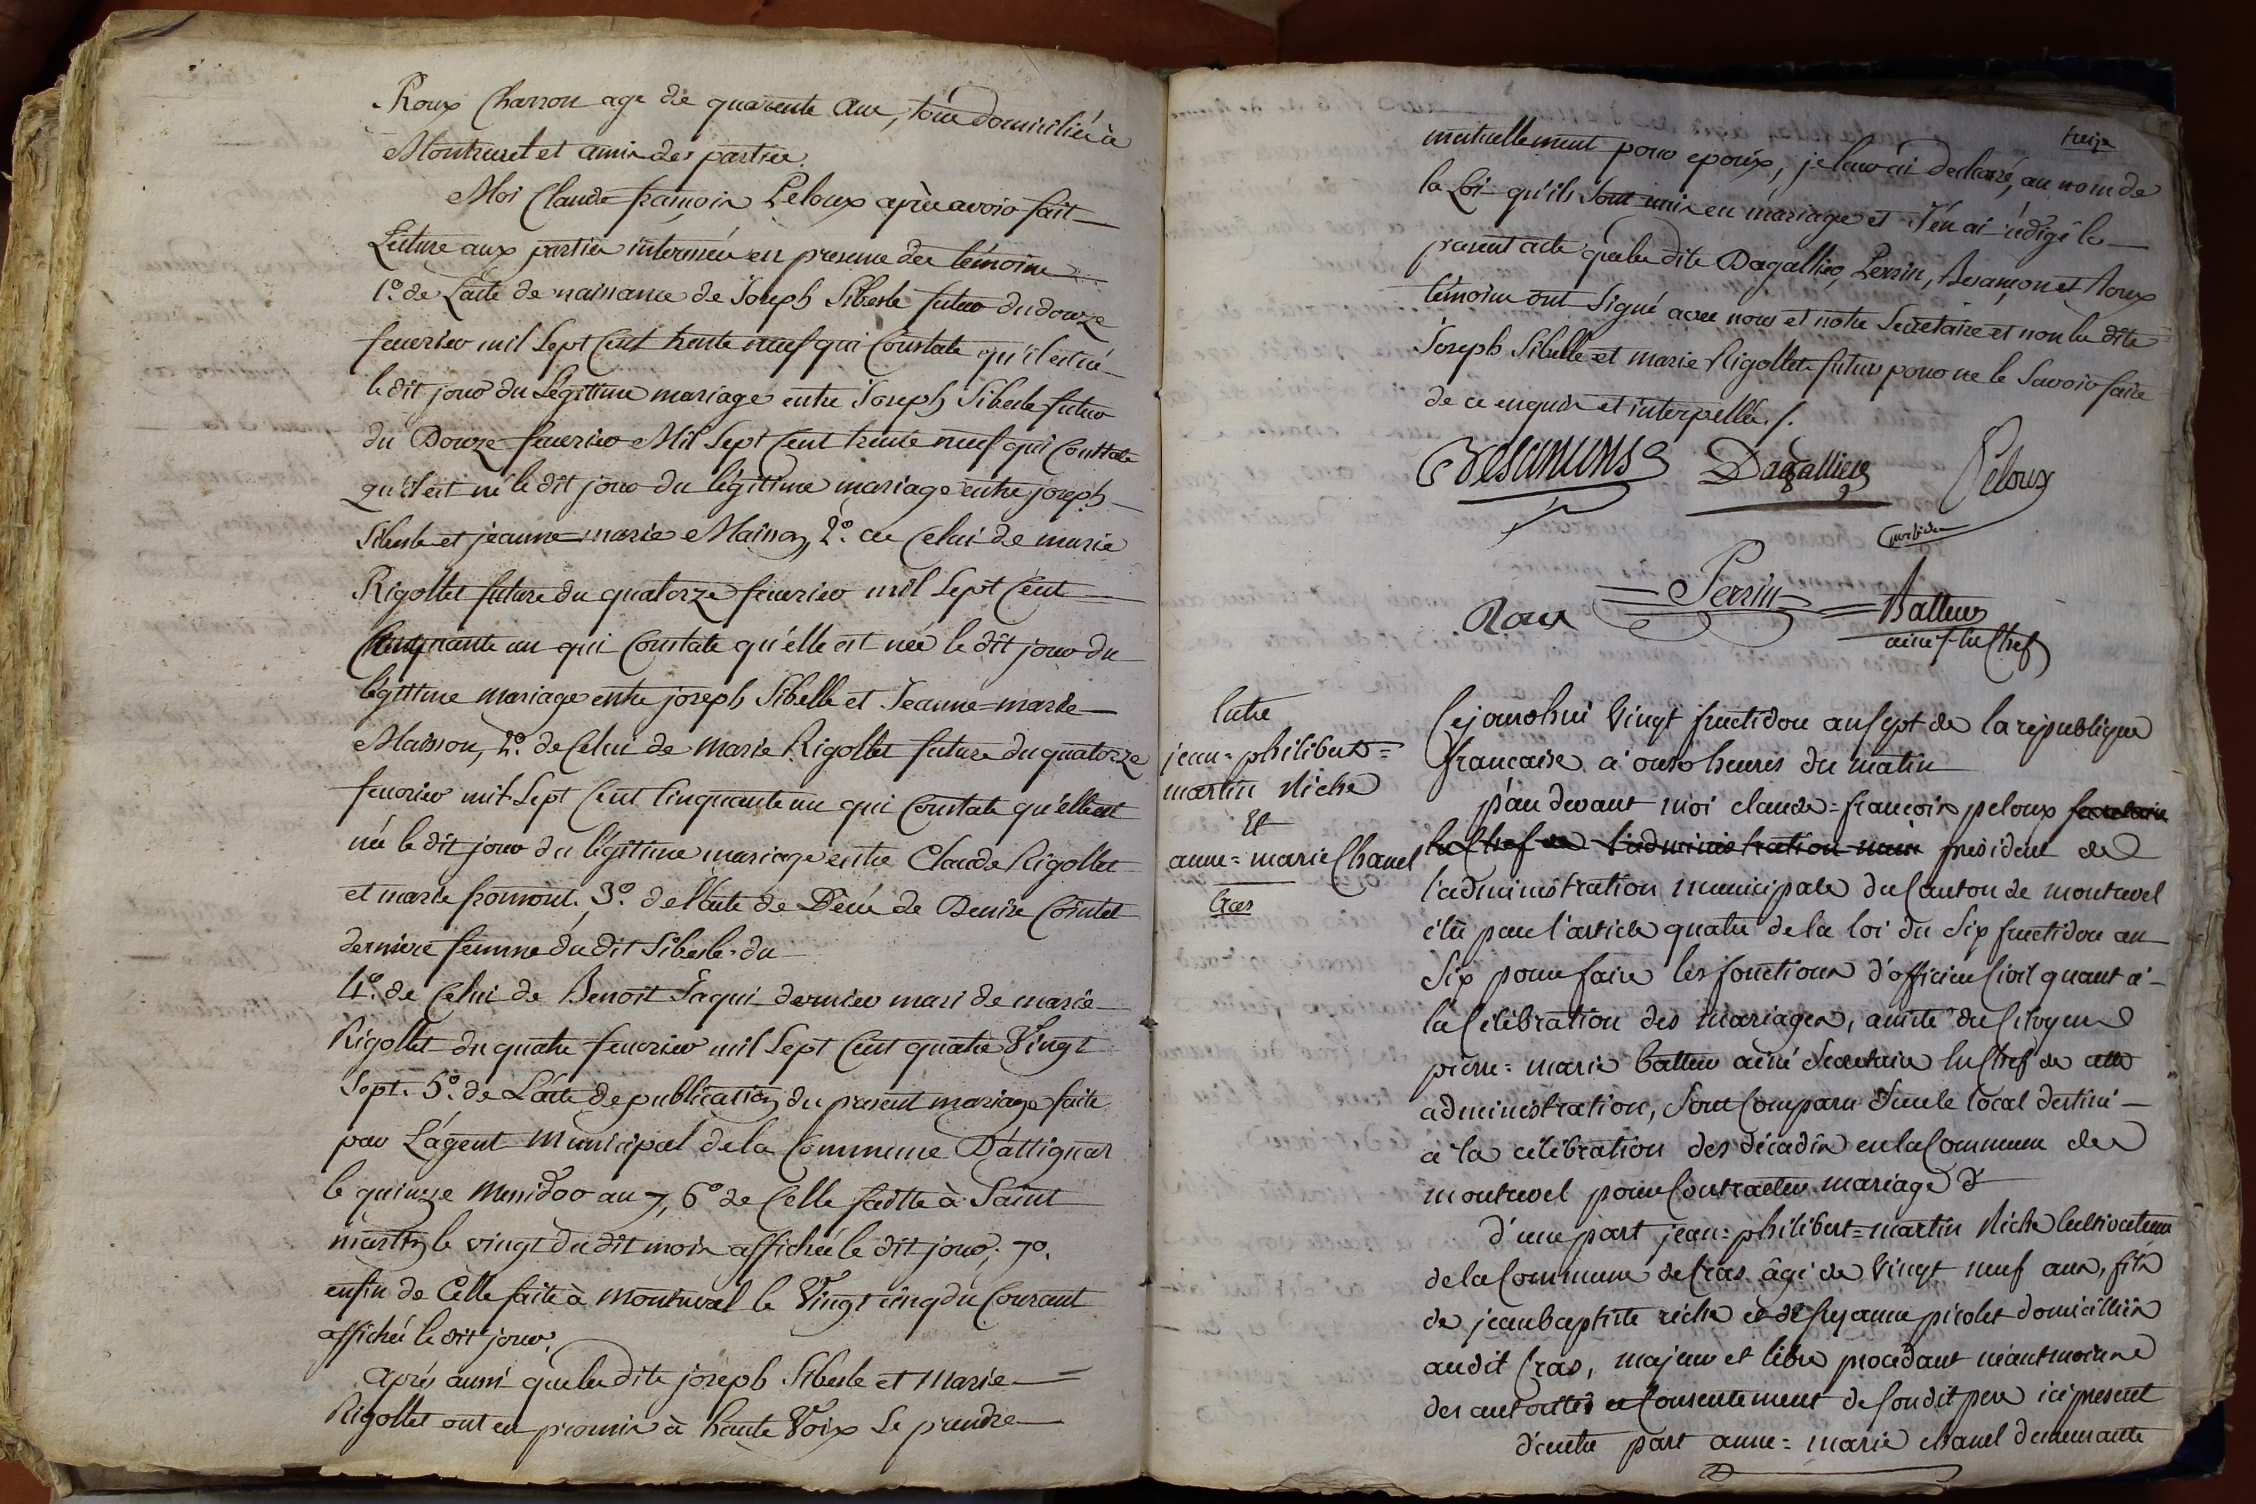 Roux Charron age de quarente ans, tous domiciliés à
Montrevel et amis des parties.
Moi Claude françois Peloux après avoir fait
Lecture aux parties interessées en presence des témoins
1º. de L'acte de naissance de Joseph Sibesle futur du douze
fevrier mil Sept Cent trente neuf qui Constate qu'il est né
le dit jour du Légitime mariage entre Joseph Sibesle futur
du Douze fevrier Mil Sept Cent trente neuf qui Constate
qu'il est né le dit jour du légitime mariage entre joseph
Sibesle et jeanne=marie Maison, 2º. de Celui de marie
Rigollet future du quatorze fevrier mil Sept Cent
Cinquante un qui Constate qu'elle est née le dit jour du
légitime mariage entre joseph Sibelle et Jeanne=marie
Maisson, 2º. de Celui de Marie Rigollet future du quatorze
fevrier mil Sept Cent Cinquante un qui Constate qu'elle est
née le dit jour du légitime mariage entre Claude Rigollet
et marie fromont. 3º. de l'acte de Décé de Denise Cointet
derniere femme du dit Sibesle du
4º. de Celui de Benoit Jaqui dernier mari de marie
Rigollet du quatre fevrier mil Sept Cent quatre Vingt
Sept. 5º. de L'acte de publication du present mariage faite
par L'agent Municipal de la Commune D'attignat
le quinze Messidor an 7, 6º de Celle faitte à Saint
martin le vingt du dit mois affichée le dit jour; 7º.
enfin de Celle faite à Montrevel le Vingt cinq du Courant
affichée le dit jour.
Après aussi que les dits joseph Sibesle et Marie
Rigollet ont eu promis à haute Voix Se prendre
treize
mutuellement pour epoux, je leur ai declaré, au nom de
la Loi qu'ils Sont unis en mariage et J'en ai rédigé le
present acte que les dits Dagallier, Perrin, Besançon et Roux
témoins ont Signé avec nous et notre Secretaire et non les dits
Joseph Sibelle et marie Rigollet futurs pour ne le Savoir faire
de ce enquis et interpellés./.
Besancons Dagallier Peloux
president
Roux Perrin Batteur
ainé en Chef
Entre
jean=philibert=
martin Niche
Et
anne=marie Chanel
Cras
Cejourdhui Vingt fructidor an sept de la république
francaise à onze heures du matin
par devant moi claude=françois peloux secretaire
en Chef de l'administration muni president de
l'administration municipale du Canton de montrevel
élu par l'article quatre de la loi du Six fructidor an
Six pour faire les fonctions d'officier Civil quant à
la Célébration des mariages, assisté du Citoyen
pierre=marie batteur ainé Secretaire en Chef de cette
administration, sont Comparu dans le local destiné
à la célébration des décadis en la Commune de
montrevel pour Contracter mariage
d'une part jean=philibert=martin Niche Cultivateur
de la Commune de Cras âgé de Vingt neuf ans, fils
de jean baptiste niche et de feu anne picolet domiciliés
audit Cras, majeur et libre procédant néantmoins
des autorités et Consentement de Son dit pere ici present
d'autre part anne=marie chanel demeurante